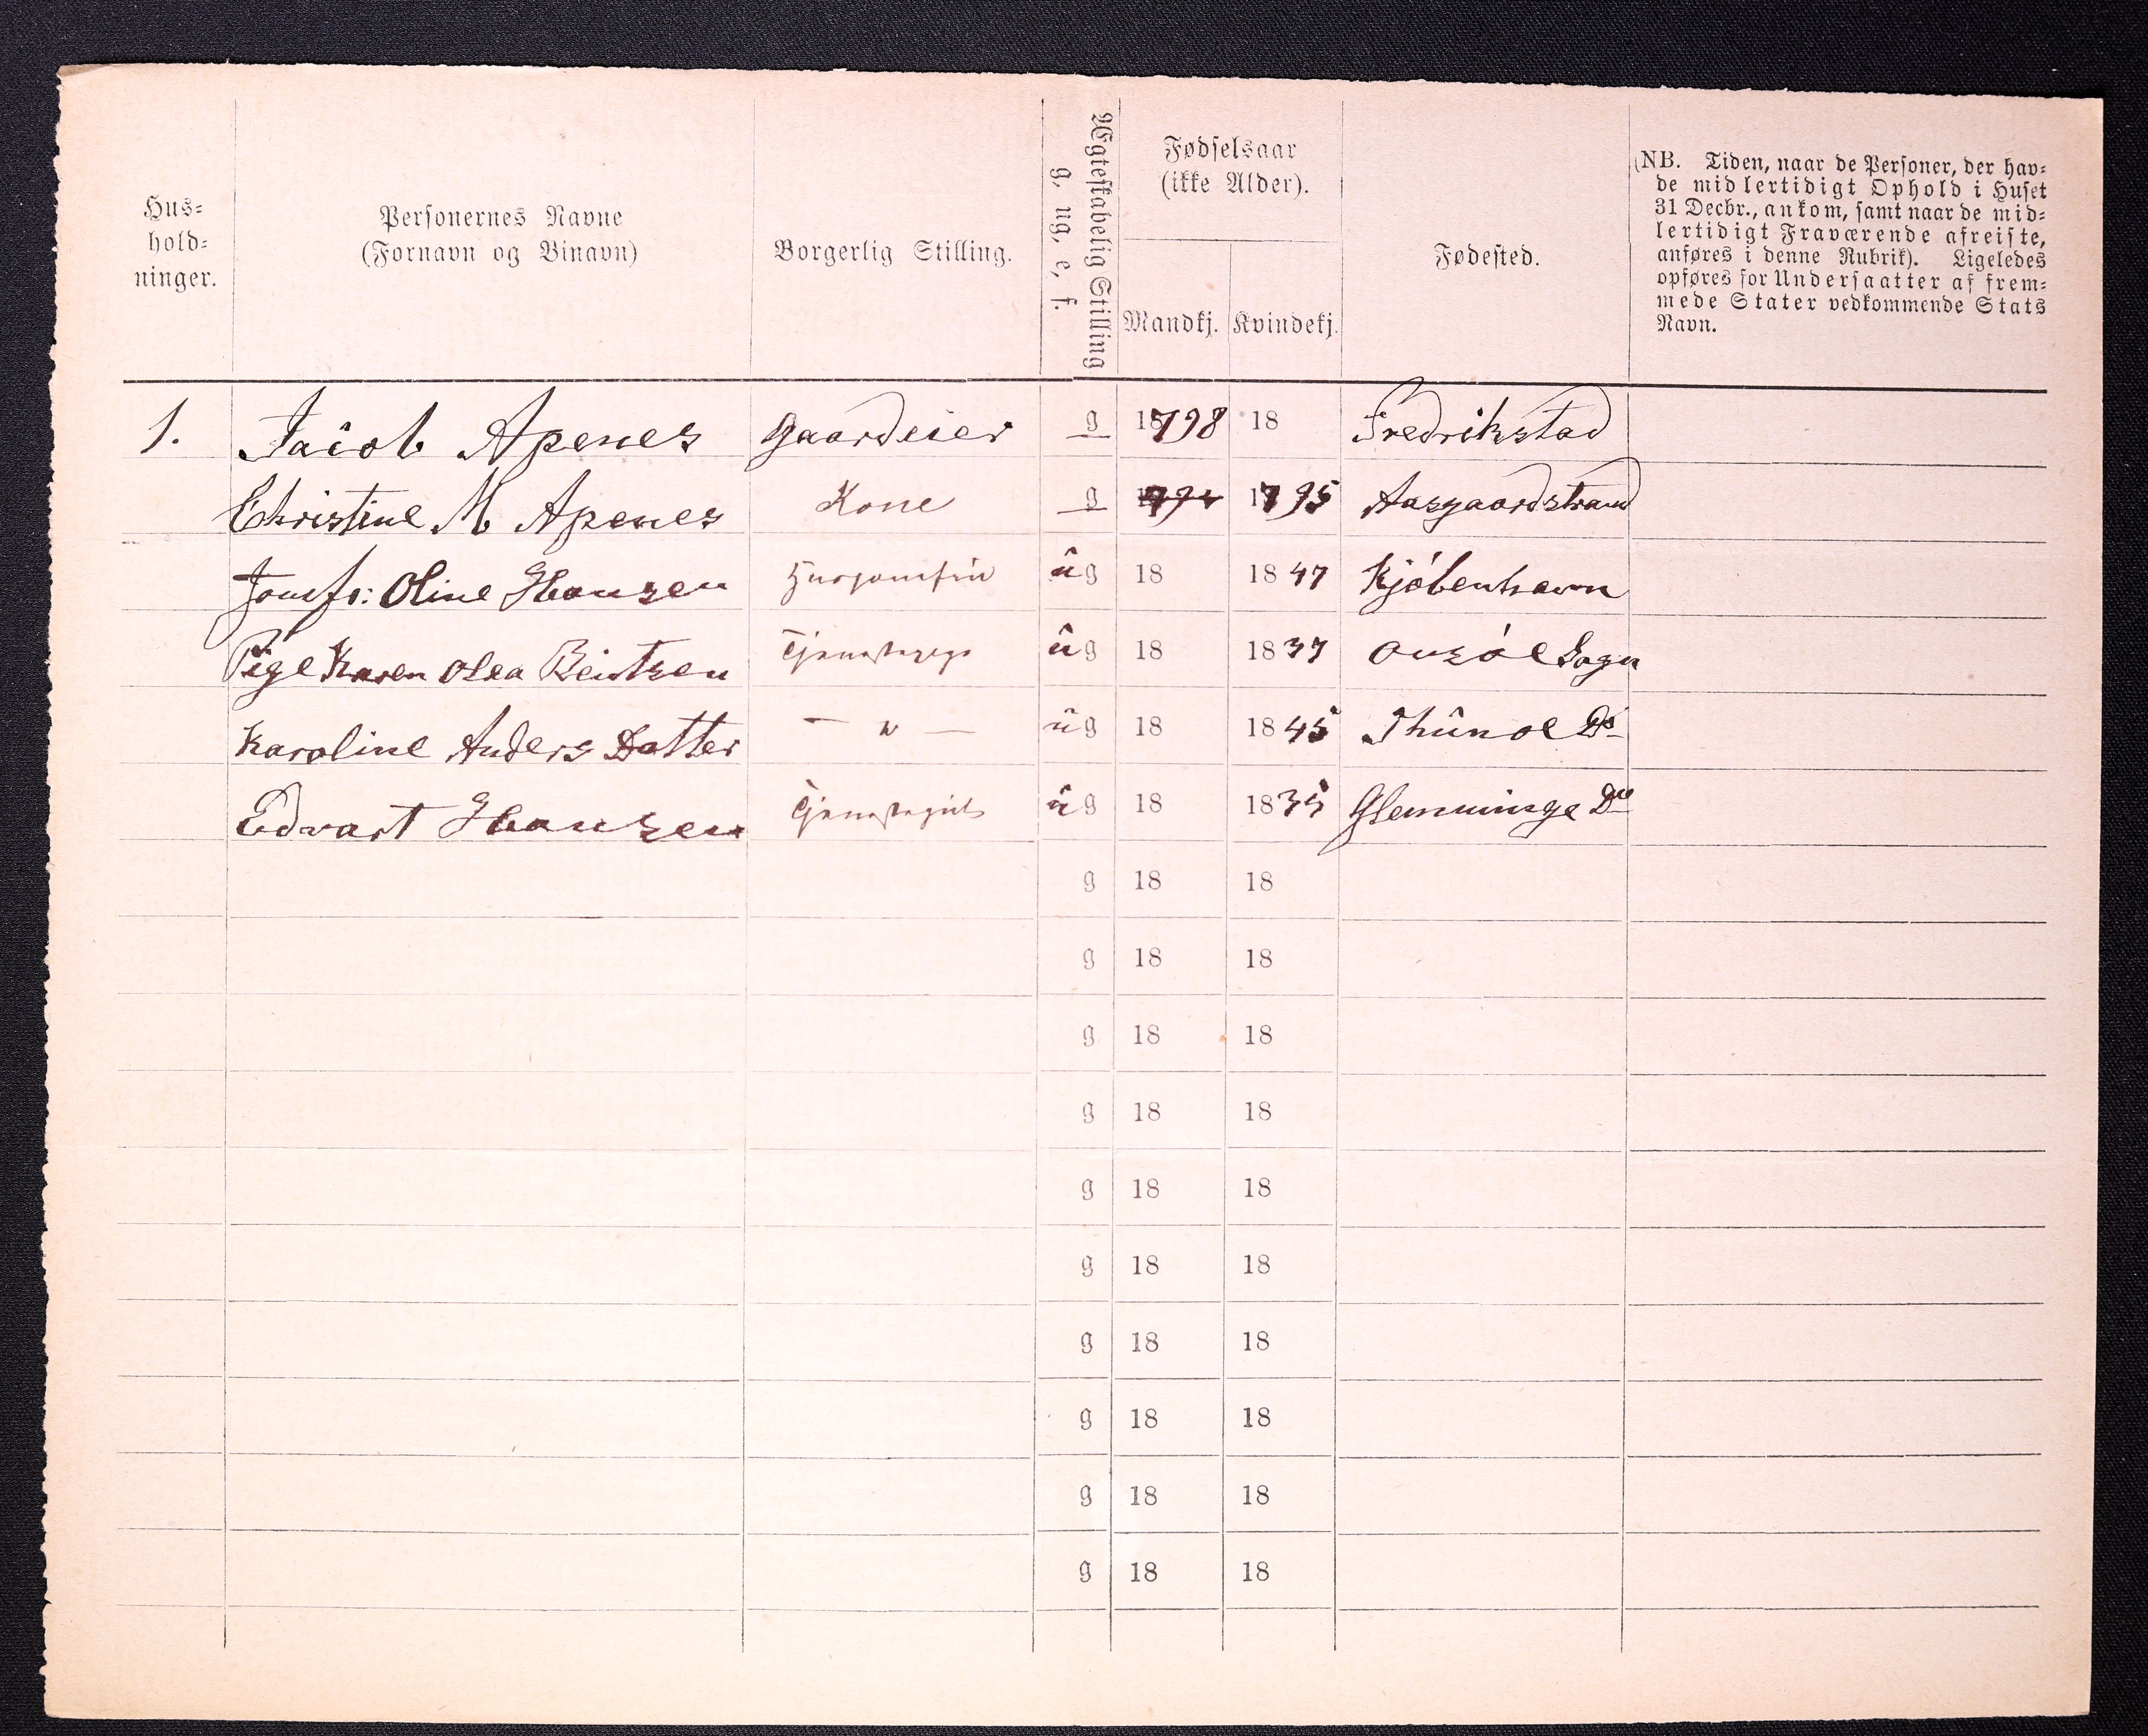 Hus-
hold-
ninger.
Personernes Navne
(Fornavn og Binavn)
Borgerlig Stilling.
Ægteskabelig Stilling
g, ug, e, f.
Fødselsaar
(ikke Alder).
Mandkj. Kvindekj.
Fødested.
(NB. Tiden, naar de Personer, der hav-
de midlertidigt Ophold i Huset
31 Decbr., ankom, samt naar de mid-
lertidigt Fraværende afreiste,
anføres i denne Rubrik). Ligeledes
opføres for Undersaatter af frem-
mede Stater vedkommende Stats
Navn.
1. Jacob Apenes gaardeier g 1798 18 Fredrikstad
Christine M Apenes Kone g 1795 Aasgaardstrand
Jomfr: Oline Hansen Husjomfru ug 18 1847 Kjóbenhavn
Pige Karen Olea Beintsen Tjenestepige ug 18 1837 Onsóe Sogn
Karoline Anders Datter — " — ug 18 1845 Thunoe Do
Edvart Hansen Tjenestegut ug 18 1835 Glemminge Do
g 18 18
g 18 18
g 18 18
g 18 18
g 18 18
g 18 18
g 18 18
g 18 18
g 18 18
g 18 18